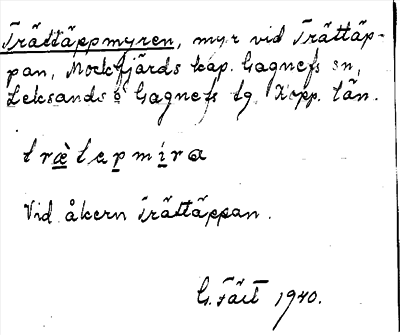 Trättäppmyren, myr vid Trättäp-
pan, Mockfjärds kap. Gagnefs sn,
Leksands o Gagnefs tg. Kopp. län.
træ̲tep̲mi̲ra
Vid åkern Trättäppan.
G. 1940.